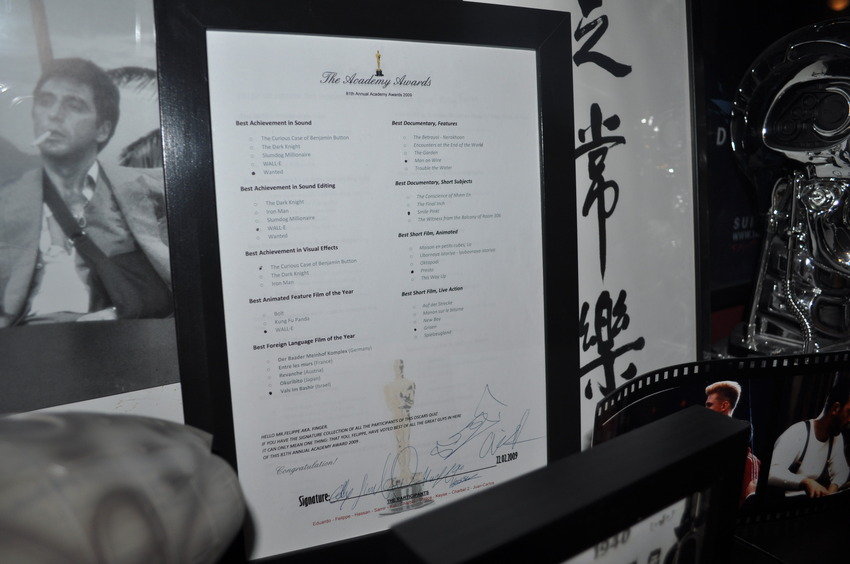 The Academy Awards
81th Annual Academy Awards 2009
Best Achievement in Sound
The Curious Case of Benjamin Button
The Dark Knight
Slumdog Millionaire
WALL-E
Wanted
Best Achievement in Sound Editing
The Dark Knight
Iron Man
Slumdog Millionaire
WALL-E
Wanted
Best Achievement in Visual Effects
The Curious Case of Benjamin Button
The Dark Knight
Iron Man
Best Animated Feature Film of the Year
Bolt
Kung Fu Panda
WALL-E
Best Foreign Language Film of the Year
Der Baader Meinhof Komplex (Germany)
Entre les murs (France)
Revanche (Austria)
Okuribito (Japan)
Vals Im Bashir (Israel)
Best Documentary, Features
The Betrayal - Nerakhoon
Encounters at the End of the World
The Garden
Man on Wire
Trouble the Water
Best Documentary, Short Subjects
The Conscience of Nhem En
The Final Inch
Smile Pinki
The Witness from the Balcony of Room 306
Best Short Film, Animated
Maison en petits cubes, La
Ubornaya istoriya - lyubovnaya istoriya
Oktapodi
Presto
This Way Up
Best Short Film, Live Action
Auf der Strecke
Manon sur le bitume
New Boy
Grisen
Spielzeugland
HELLO MR.FELIPPE AKA. FINGER.
IF YOU HAVE THE SIGNATURE COLLECTION OF ALL THE PARTICIPANTS OF THIS OSCARS QUIZ
IT CAN ONLY MEAN ONE THING: THAT YOU, FELIPPE, HAVE VOTED BEST OF ALL THE GREAT GUYS IN HERE
OF THIS 81TH ANNUAL ACADEMY AWARD 2009.
Congratulation!
Signature:
22.02.2009
THE PARTICIPANTS
Eduardo - Felippe - Hassan - Sama
Juan-Carlos
之
常
樂